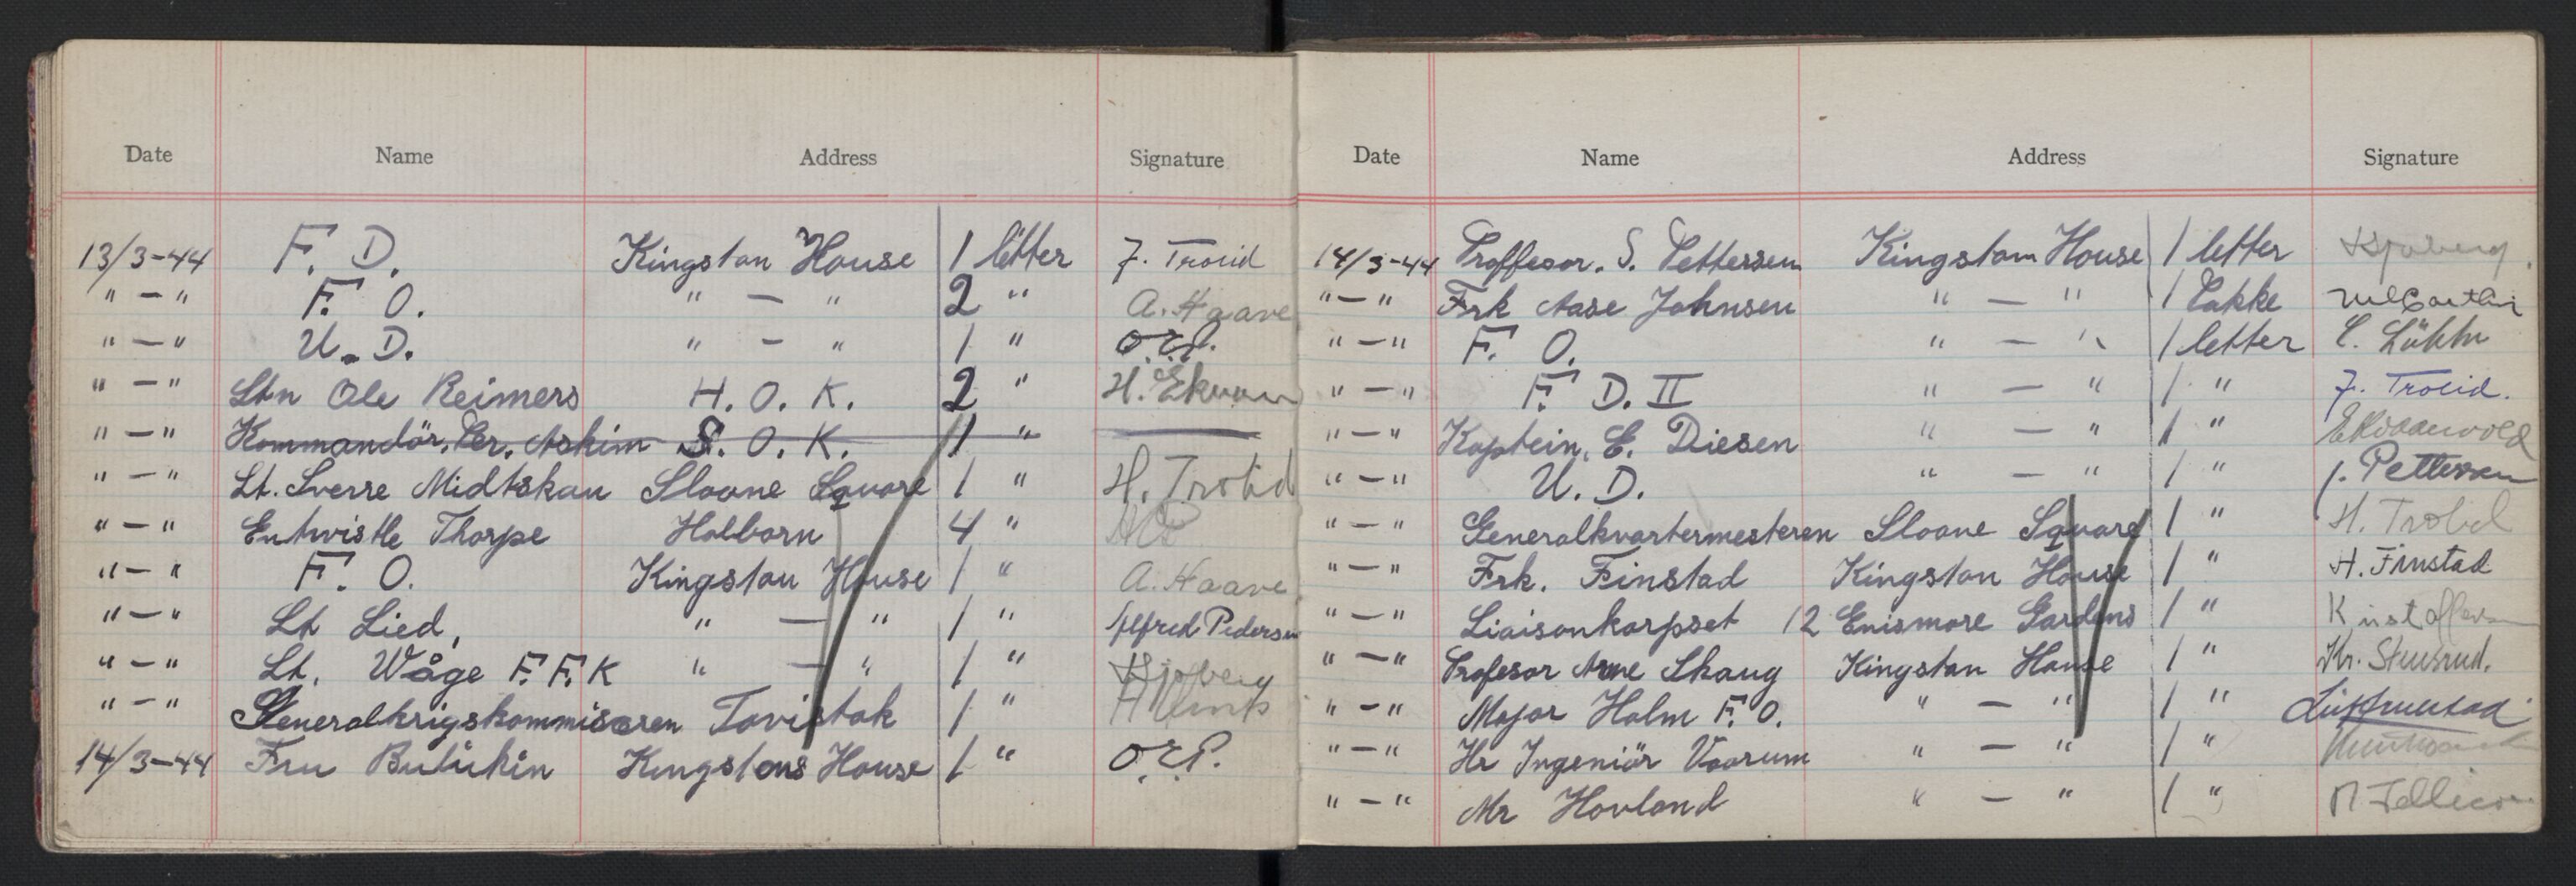 Date Name Address Signature
13/3-44 F. D. Kingston House 1 letter F. Troiid
" — " F. O. " — " 2 " A. Haave
" — " U. D. " — " 1 " O.E.P.
" — " Ltn Ole Reimers H. O. K. 2 " H. Ekman
" — " Kommandör, Per. Askim S. O. K. 1 " —
" — " Lt. Sverre Midtskau Sloane Square 1 " H. Trolid
" — " Entwistle Thorpe Holborn 4 "
" — " F. O. Kingston House 1 " A. Haave
" — " Lt Lied, " — " 1 " Alfred Pedersen
" — " Lt. Wåge F. F. K " — " 1 " Sjøberg
" — " Generalkrigskommisæren Tavistok 1 "
14/3-44 Fru Butükin Kingstons House 1 " O.E.P.
Date Name Address Signature
14/3-44 Proffesor. S. Pettersen Kingston House 1 letter Sjøberg
" — " Frk Aase Johnsen " — " 1 Pakke
" — " F. O. " — " 1 letter
" — " F. D. II " — " 1 " F. Troiid.
" — " Kaptein, E. Diesen " — " 1 "
" — " U. D. " — " 1 " J. Pettersen
" — " Generalkvartermesteren Sloane Square 1 " H. Trolid
" — " Frk. Finstad Kingston House 1 " H. Finstad
" — " Liaisonkorpset 12 Enismore Gardens 1 " Kristoffersen
" — " Profesor Arne Skaug Kingston House 1 " Kr. Stensrud.
" — " Major Holm F. O. " — " 1 "
" — " Hr Ingeniör Vaarum " — " 1 "
" — " Mr Hovland " — " 1 "